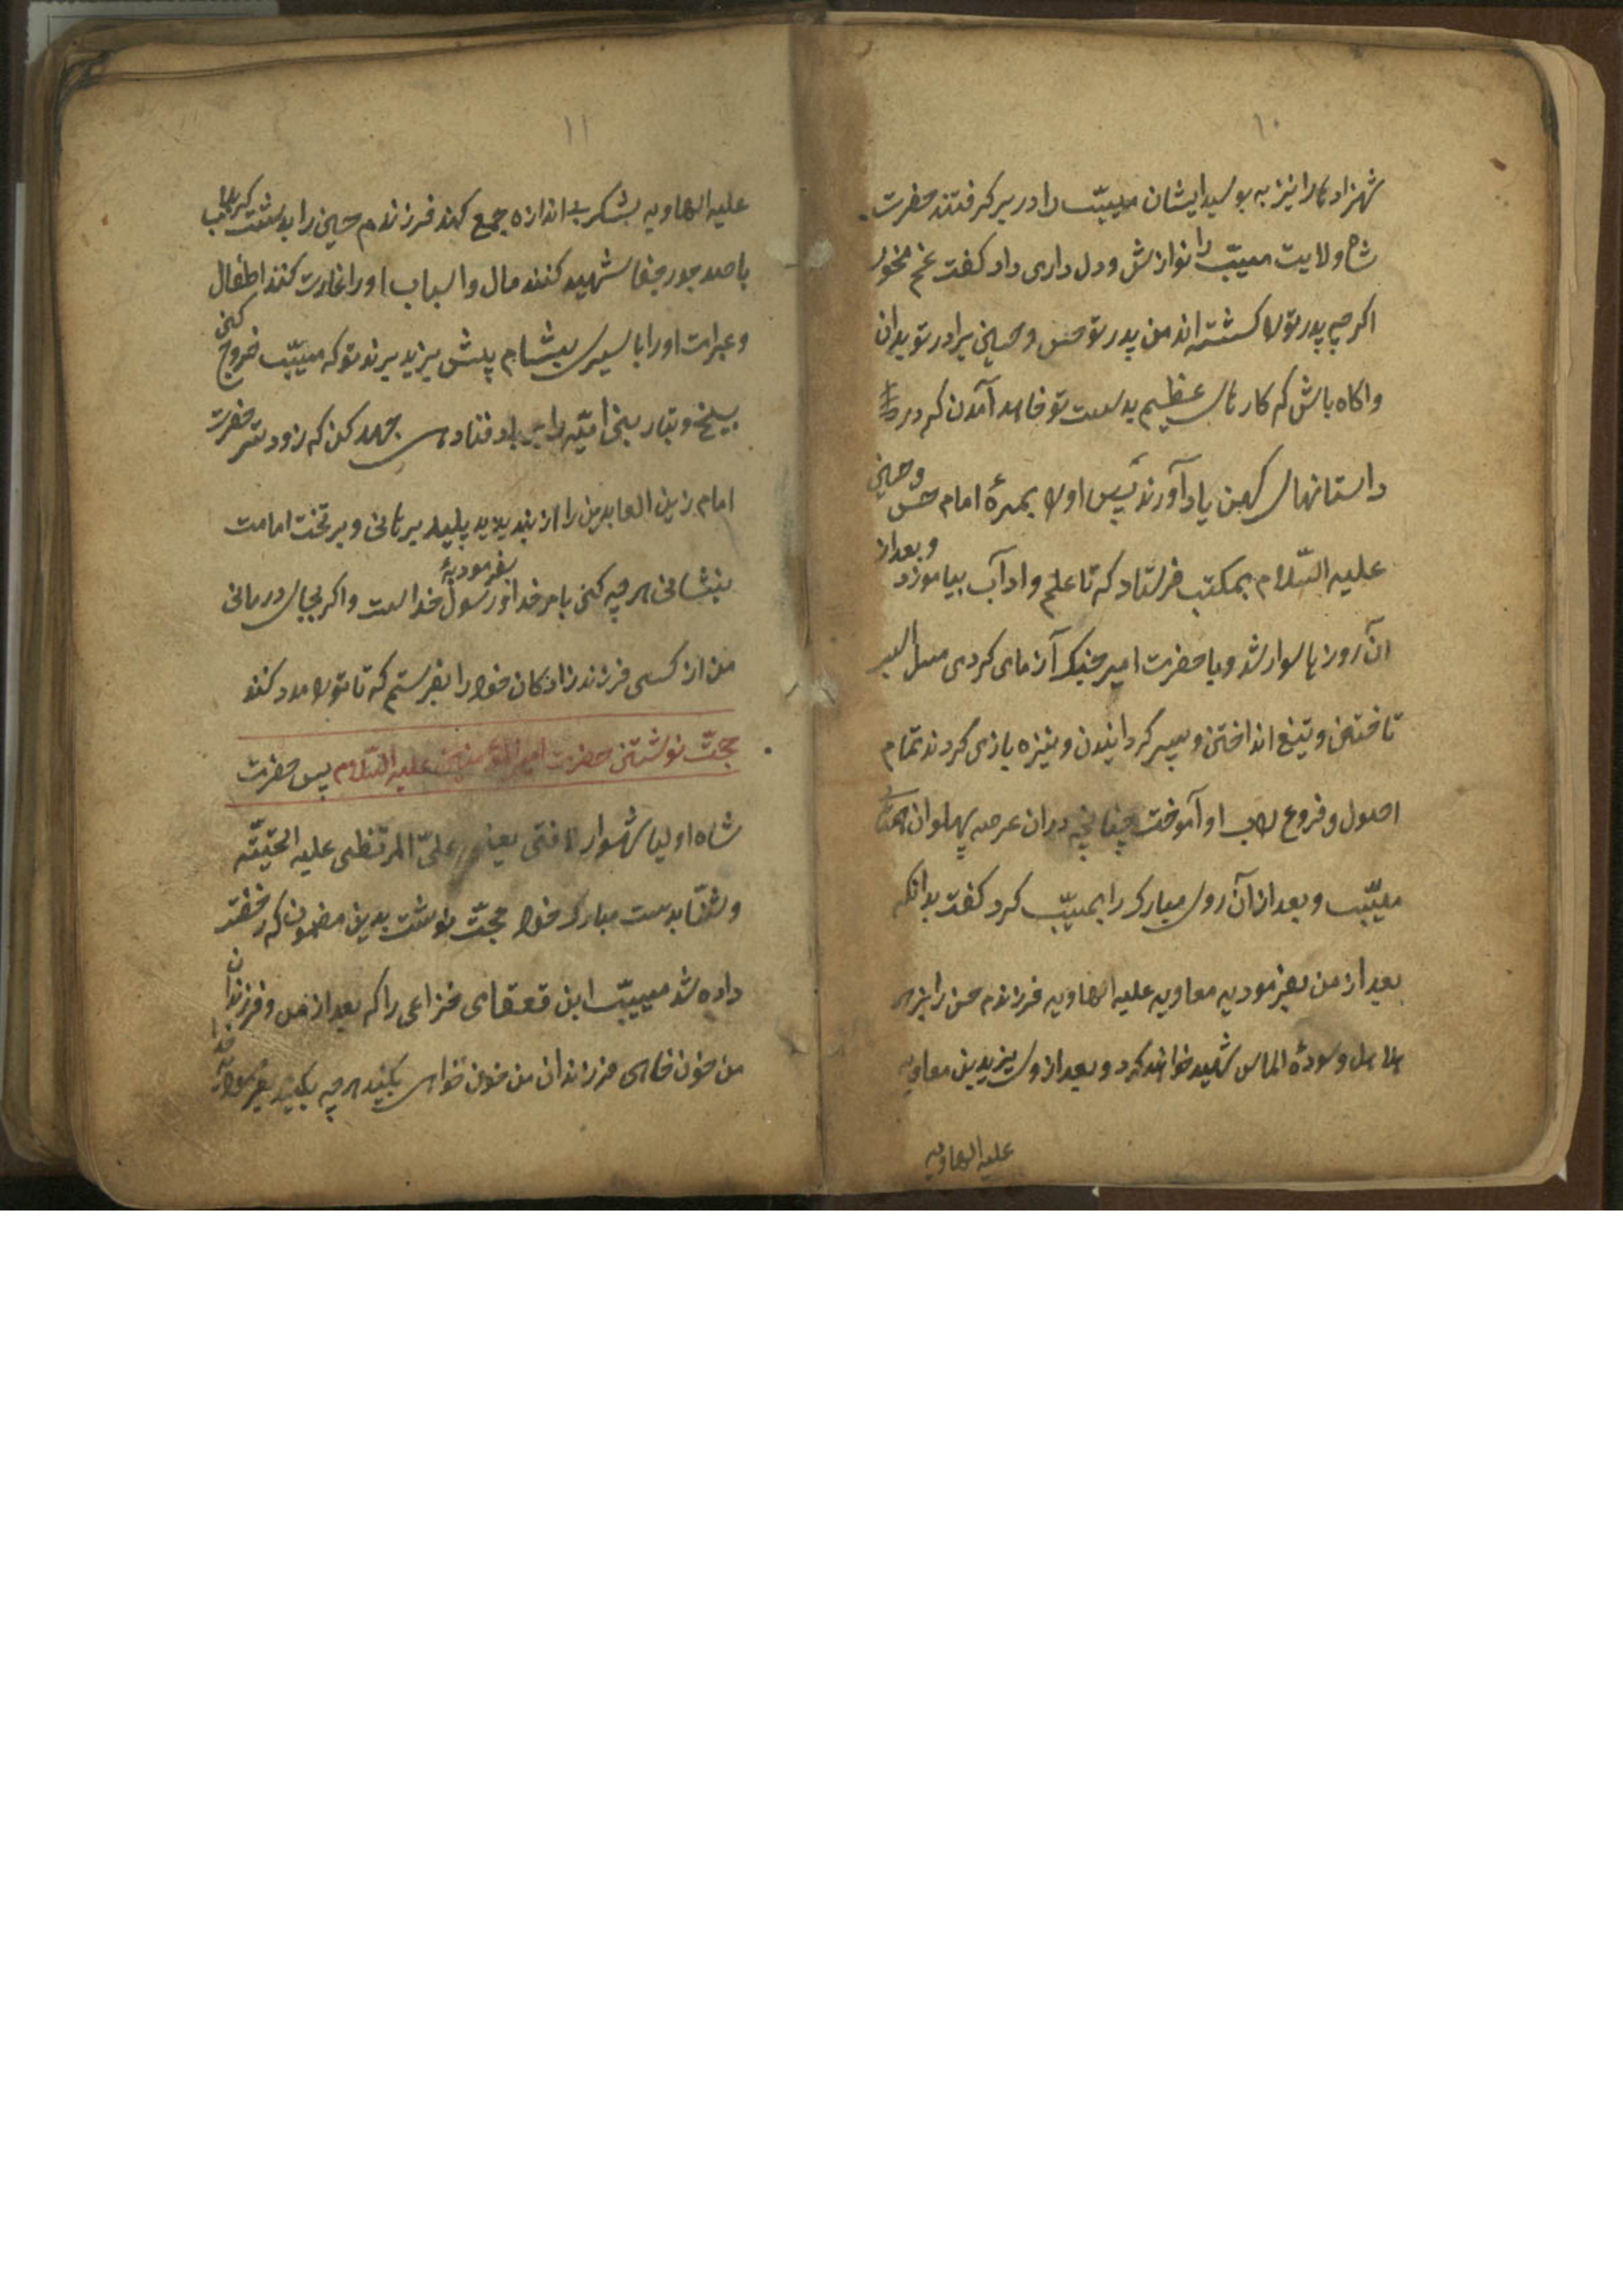 ۱۰
شهزادها را نیز به بوسید ایشان مسیّب را در بر کرفتند حضرت
شاه ولایت مسیّب را نوازش و دل داری داد کفت غم مخور
اکرچه پدر تورا کشته اند من پدر تو حسن و حسین برادر تو بدان
و اکاه باش که کارهای عظیم بدست تو خاهد آمدن که در
داستانهای کهن یاد آورند پس اورا بهمرهٔ امام حسن و حسین
علیه السّلام بمکتب فرستاد که تا علم و اداب بیاموزد و بعد از
آن روزها سوار شد و با حضرت امیر جنک آزمای کردی
تاختن و تیغ انداختن و سپر کردانیدن و نیزه بازی کردند تمام
اصول و فروع را باو آموخت چنانچه دران عرصه پهلوان
مسیّب و بعد از آن روی مبارک را بمسیّب کرد کفت بدانکه
بعد از من بفرمودیه معاویه علیه الهاویه فرزندم حسن را بزهر
هلاهل و سودهٔ الماس شهید خواهند کرد و بعد از وی یزید بن معاویه
علیه الهاویه
۱۱
علیه الهاویه لشکر بی اندازه جمع کند فرزندم حسین را بدشت کربلا
باصد جور جفا شهید کنند مال و اسباب اورا غارت کنند اطفال
و عیرات اورا با سیری بشام پیش یزید برند تو که مسیّب خروج کنی
بیخ و تبار بنی امیّه را بر باد فنا دهی جهد کن که زودتر حضرت
امام زین العابدین را از بند یزید پلید برهانی و بر تخت امامت
بنشانی هرچه کنی بامر خدا و بفرمودیهٔ رسول خداست و اکر بجای درمانی
من از کسی فرزند زادکان خود را بفرستم که تا تورا مدد کنند
حجّت نوشتن حضرت امیر المؤمنین علیه السّلام پس حضرت
شاه اولیا شهسوار لافتی یعنی علیّ المرتظی علیه التحیّته
و الثنّا بدست مبارک خود حجّت نوشت بدین مضمون که رخصت
داده شد مسیّب ابن قعقای خزاعی را که بعد از من و فرزندان
من خون خاهی فرزندان من خون خواهی بکنید هرچه بکنید بفرمودهٔ خدا